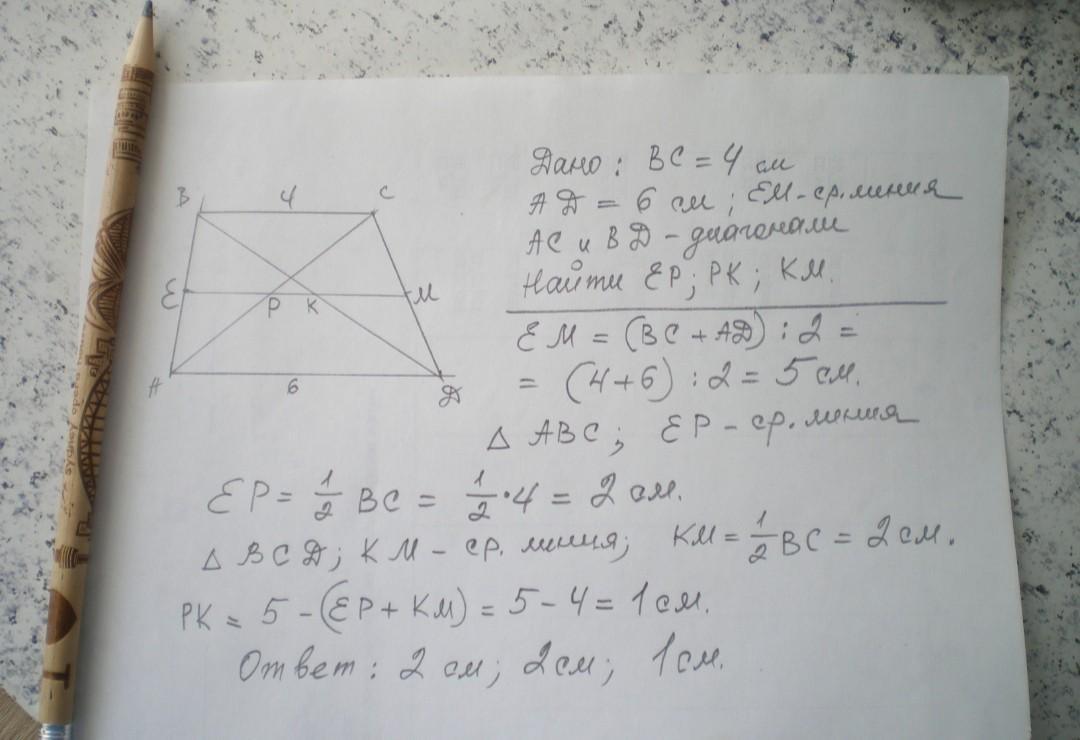 B 4 C
E P K M
A 6 Д
Дано: BC = 4 см
AД = 6 см; EM - ср. линия
AC и BД - диагонали
Найти EP; PK; KM.
EM = (BC + AД) : 2 =
= (4+6) : 2 = 5 см.
△ ABC; EP - ср. линия
EP = 1/2 BC = 1/2 · 4 = 2 см.
△ BCД; KM - ср. линия; KM = 1/2 BC = 2 см.
PK = 5 - (EP + KM) = 5 - 4 = 1 см.
Ответ: 2 см; 2 см; 1 см.